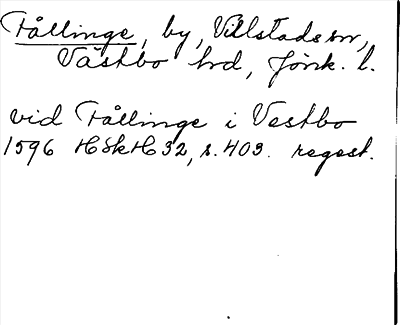 Tållinge, by, Villstads sn,
Västbo hrd, Jönk. l.
vid Tållinge i Vestbo
1596 HSkH 32, s. 403. regest.